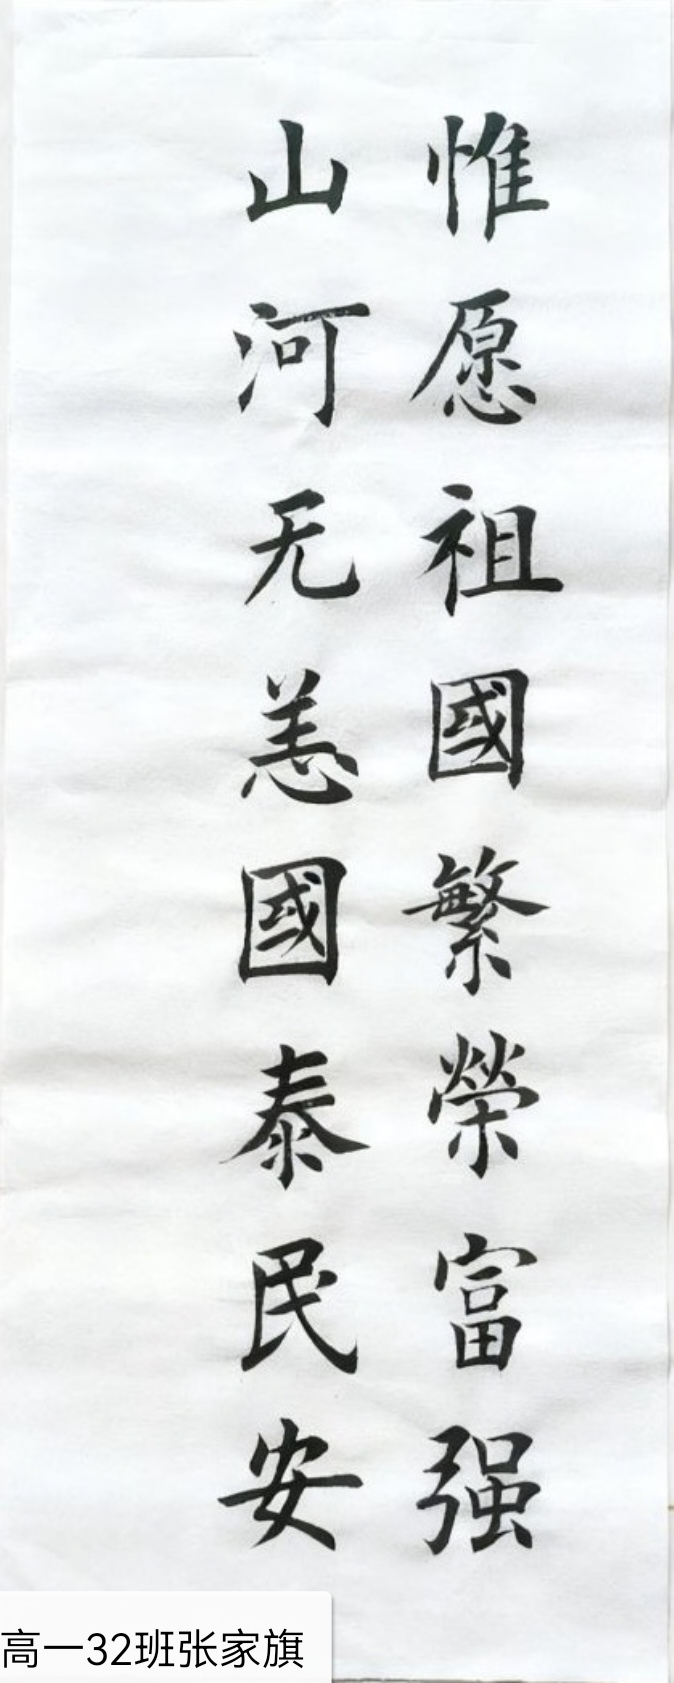 惟愿祖國繁榮富强
山河无恙國泰民安
高一32班张家旗